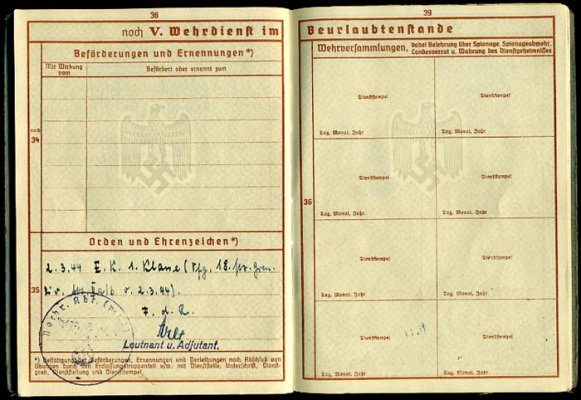 38
noch V. Wehrdienst im
Beförderungen und Ernennungen*)
Mit Wirkung vom
Befördert oder ernannt zum
noch
34
Orden und Ehrenzeichen*)
2.3.44 E.K. 1. Klasse (Vfg. 18.
v. 2.3.44).
35
F. d. R.
Leutnant u. Adjutant.
*) Bestätigung der Beförderungen, Ernennungen und Verleihungen nach Abschluß von
Übungen durch den Entlassungstruppenteil usw. mit Dienststelle, Unterschrift, Dienst-
grad, Dienststellung und Dienststempel.
39
Beurlaubtenstande
Wehrversammlungen, dabei Belehrung über Spionage, Spionageabwehr,
Landesverrat u. Wahrung des Dienstgeheimnisses
Dienststempel
Dienststempel
Tag, Monat, Jahr
Tag, Monat, Jahr
Dienststempel
Dienststempel
36
Tag, Monat, Jahr
Tag, Monat, Jahr
Dienststempel
Dienststempel
Tag, Monat, Jahr
Tag, Monat, Jahr
Dienststempel
Dienststempel
Tag, Monat, Jahr
Tag, Monat, Jahr